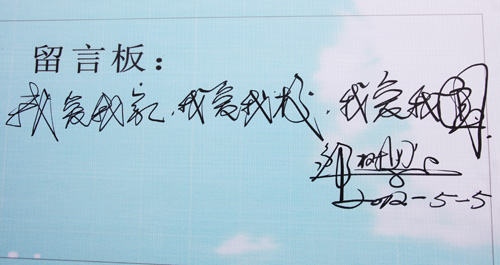 留言板：
我爱我家，我爱我校，我爱我国
2012-5-5